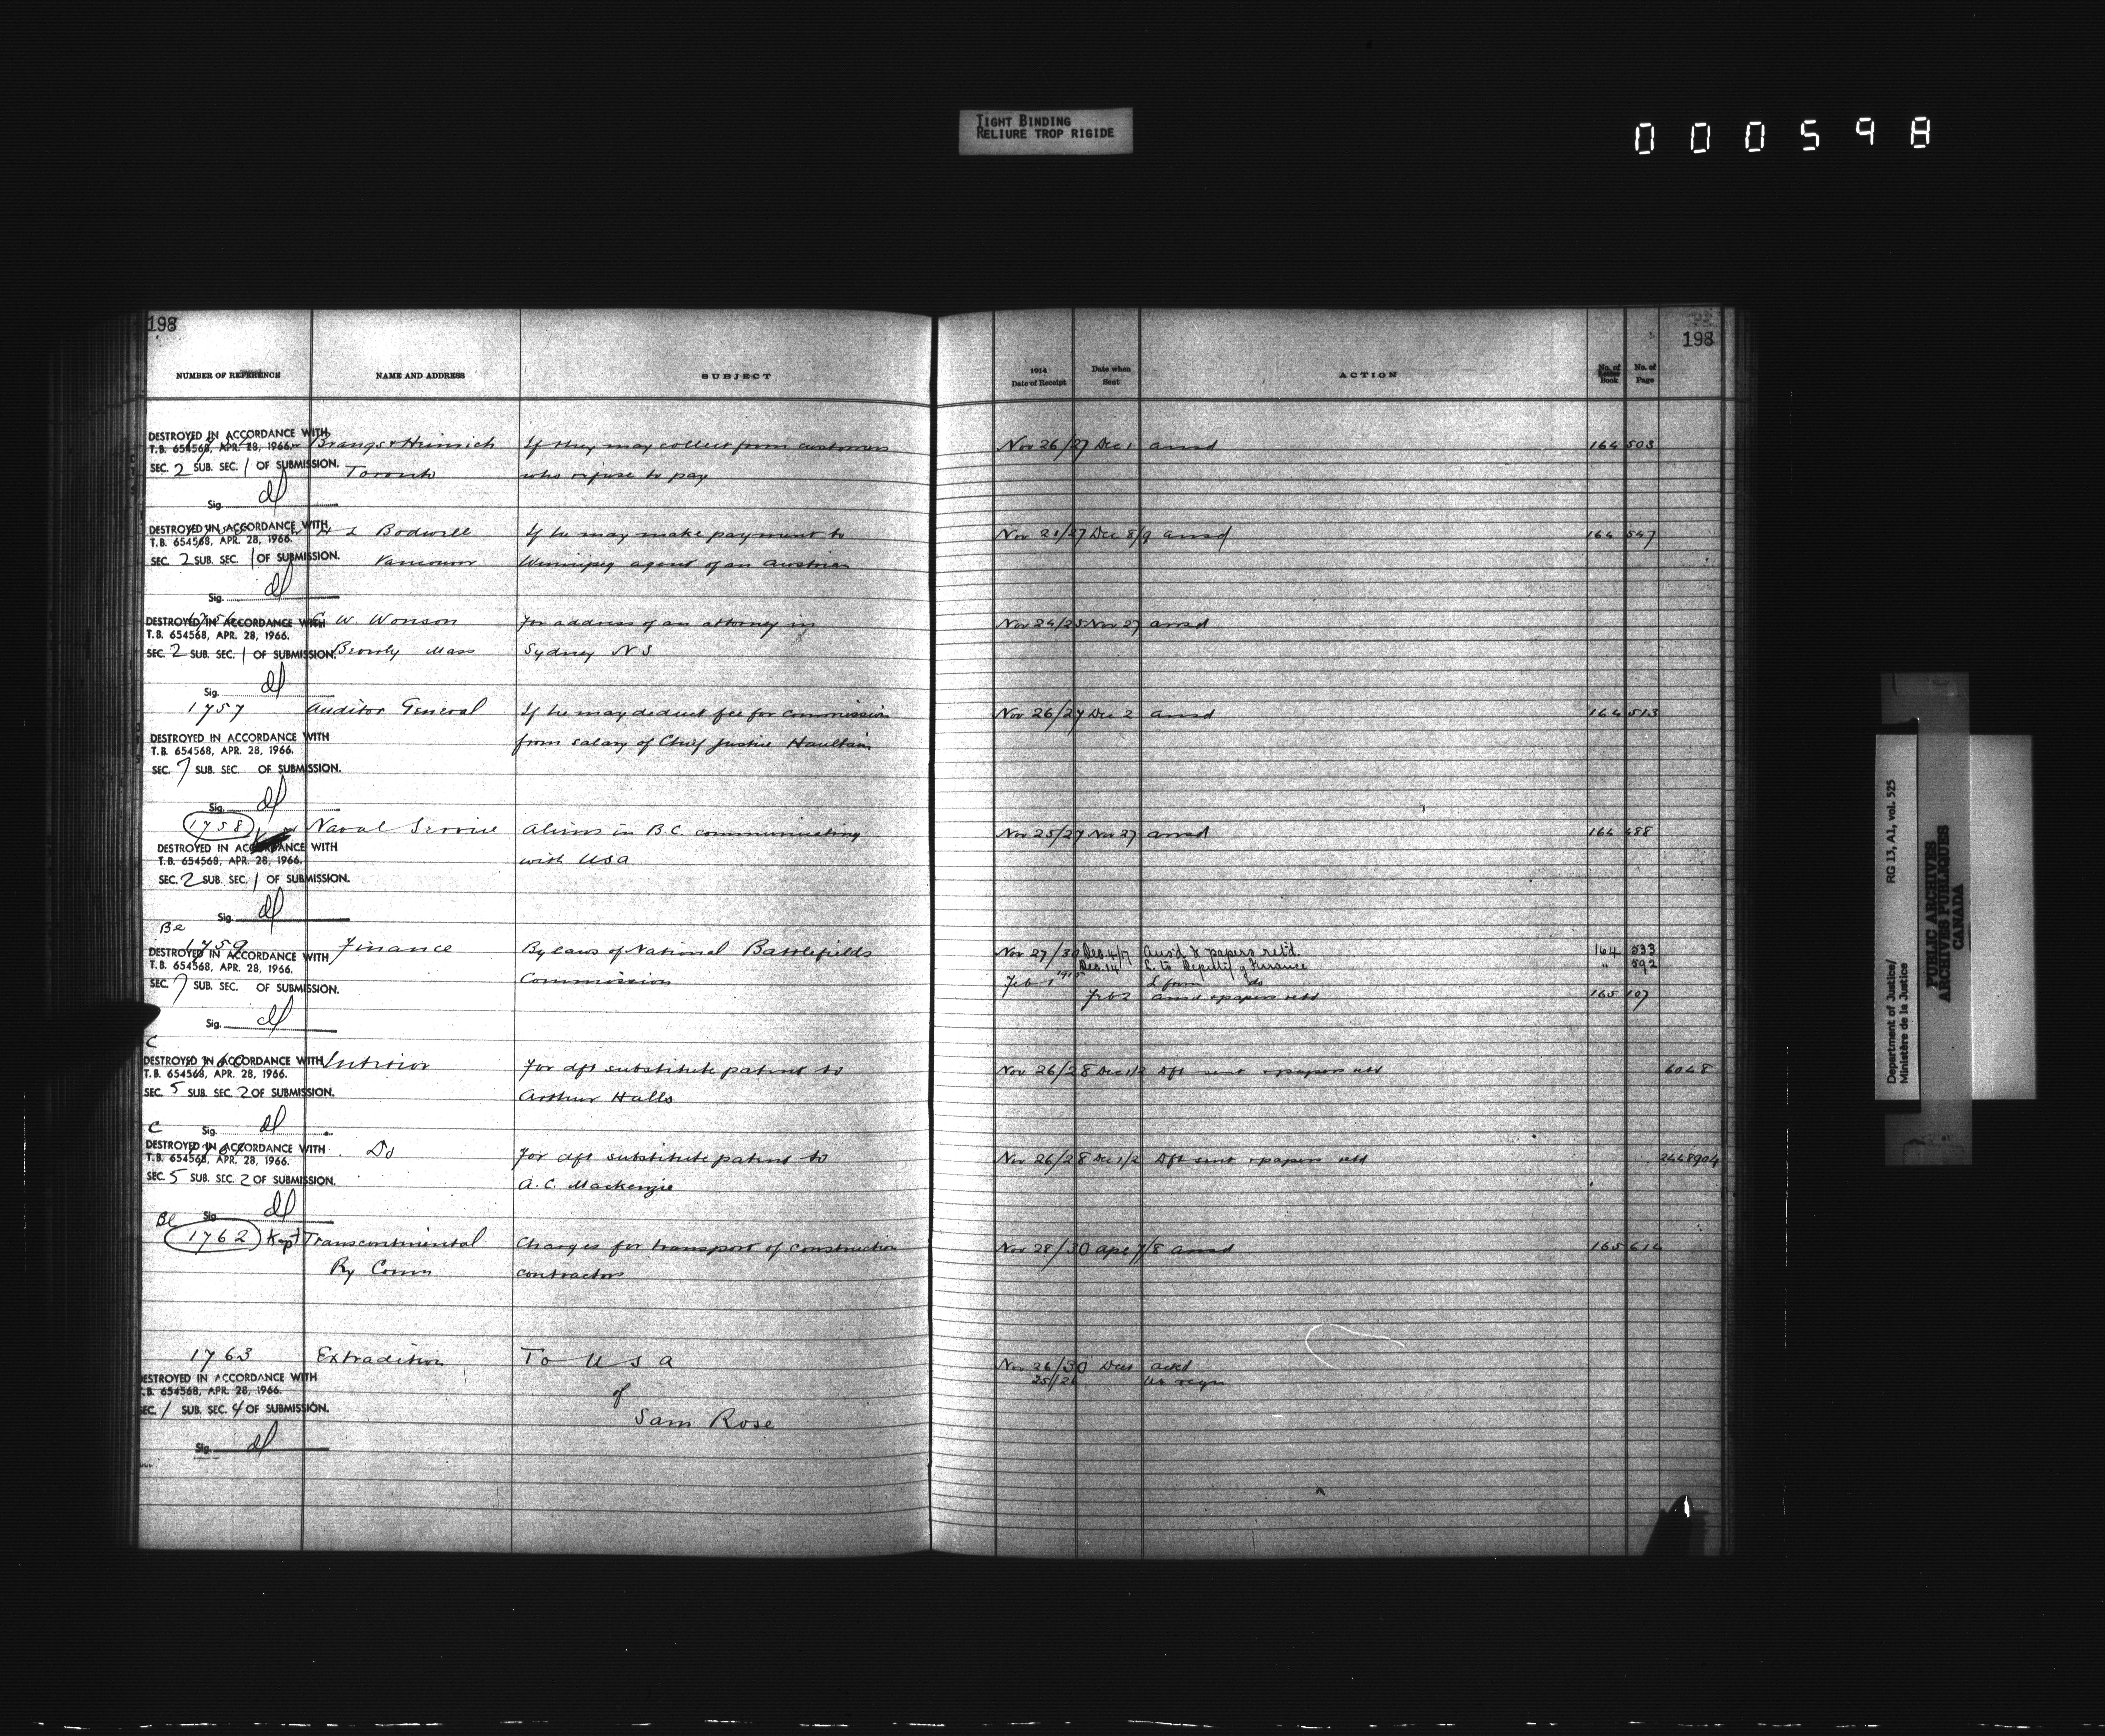 TIGHT BINDING
RELIURE TROP RIGIDE
000598
198
198
NUMBER OF REFERENCE NAME AND ADDRESS SUBJECT 1914 Date of Receipt Date when Sent ACTION No. of Letter Book No. of Page
DESTROYED IN ACCORDANCE WITH
T.B. 654568, APR. 28, 1966.
SEC. 2 SUB. SEC. 1 OF SUBMISSION.
Sig. dl
Brangs & Heinrich If they may collect from customers Nov 26/27 Dec 1 ansd 164 503
Toronto who refuse to pay
DESTROYED IN ACCORDANCE WITH
T.B. 654568, APR. 28, 1966.
SEC. 2 SUB. SEC. 1 OF SUBMISSION.
Sig. dl
L Bodwell If he may make payment to Nov 21/27 Dec 8/9 ansd 164 547
Vancouver Winnipeg agent of an Austrian
DESTROYED IN ACCORDANCE WITH
T.B. 654568, APR. 28, 1966.
SEC. 2 SUB. SEC. 1 OF SUBMISSION.
Sig. dl
W. Wonson For address of an attorney in Nov 24/25 Nov 27 ansd
Beverly Mass Sydney N S
1757 Auditor General If he may deduct fee for commission Nov 26/27 Dec 2 ansd 164 513
from salary of Chief Justice Haultain
DESTROYED IN ACCORDANCE WITH
T.B. 654568, APR. 28, 1966.
SEC. 7 SUB. SEC. OF SUBMISSION.
Sig. dl
1758 Naval Service Aliens in B.C. communicating Nov 25/27 Nov 27 ansd 164 488
with USA
DESTROYED IN ACCORDANCE WITH
T.B. 654568, APR. 28, 1966.
SEC. 2 SUB. SEC. 1 OF SUBMISSION.
Sig. dl
Be
1759 Finance Bylaws of National Battlefields Nov 27/30 Dec. 4/7 Ansd & papers retd. 164 533
Dec. 14 L. to Deputy of Finance " 592
Commission Feb 1 1915 L from do
Feb 2 ansd & papers retd 165 107
DESTROYED IN ACCORDANCE WITH
T.B. 654568, APR. 28, 1966.
SEC. 7 SUB. SEC. OF SUBMISSION.
Sig. dl
C
1760 Interior For dft substitute patent to Nov 26/28 Dec 1/2 Dft sent & papers retd 6048
Arthur Halls
DESTROYED IN ACCORDANCE WITH
T.B. 654568, APR. 28, 1966.
SEC. 5 SUB. SEC. 2 OF SUBMISSION.
Sig. dl
C
Do For dft substitute patent to Nov 26/28 Dec 1/2 Dft sent & papers retd 2448904
A. C. Mackenzie
DESTROYED IN ACCORDANCE WITH
T.B. 654568, APR. 28, 1966.
SEC. 5 SUB. SEC. 2 OF SUBMISSION.
Sig. dl
Be
1762 Kept Transcontinental Charges for transport of construction Nov 28/30 Apl 7/8 ansd 165 614
Ry Comn contractors
1763 Extradition To U S A Nov 26/30 Dec 1 ackd
25/26
of
Sam Rose
DESTROYED IN ACCORDANCE WITH
T.B. 654568, APR. 28, 1966.
SEC. 1 SUB. SEC. 4 OF SUBMISSION.
Sig. dl
Department of Justice/ RG 13, A1, vol. 525
Ministère de la Justice
PUBLIC ARCHIVES
ARCHIVES PUBLIQUES
CANADA